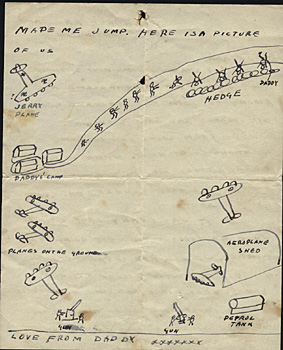 MADE ME JUMP. HERE IS A PICTURE
OF US
JERRY
PLANE
HEDGE
DADDY
DADDYS CAMP
PLANES ON THE GROUND
AEROPLANE
SHED
GUN
GUN
PETROL
TANK
LOVE FROM DADDY XXXXXXX